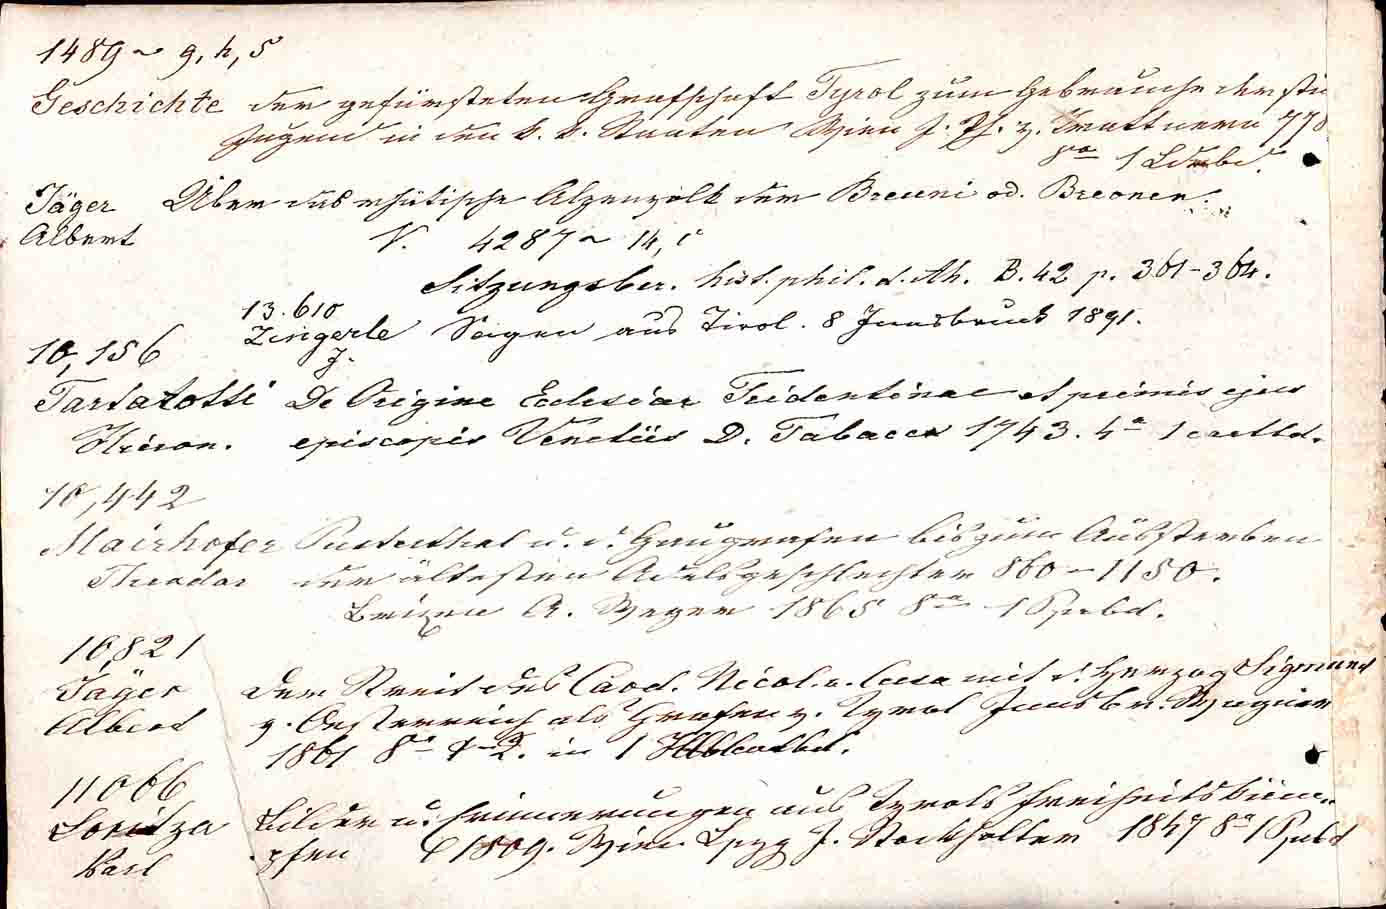 1489 ~ g, h, 5
Geschichte der gefürsteten Grafschaft Tyrol zum Gebrauche der
Jugend in den k. k. Staaten Wien J. Th. v. Trattnern 778
8° 1 Ldrbd.
Jäger Über das rhätische Alpenvolk der Breuni od. Breonen.
Albert V. 4287 ~ 14, c
Sitzungsber. hist. phil. d. Ak. B. 42 p. 361-364.
13.610
Zingerle Sagen aus Tirol. 8 Innsbruck 1891.
J.
10,156
Tartarotti De Origine Ecclesiae Tridentinae et primis ejus
Hieron. episcopis Venetiis D. Tabacco 1743. 4° 1
10,442
Mairhofer Pusterthal u. s. Gaugrafen bis zum Aussterben
Theodor der ältesten Adelsgeschlechter 860-1150.
Brixen A. Weger 1865 8° 1 Ppbd.
10,821
Jäger Der Streit des Card. Nicol. v. Cusa mit d. Herzog Sigmund
Albert v. Oesterreich als Grafen v. Tyrol Innsbr. Wagner
1861 8° 1-2. in 1
11066
Loritza Bilder u. Erinnerungen aus Tyrols Freiheitskäm-
Karl pfen 1809. Wien Lpzg J. Stockholzer 1847 8° 1 Ppbd